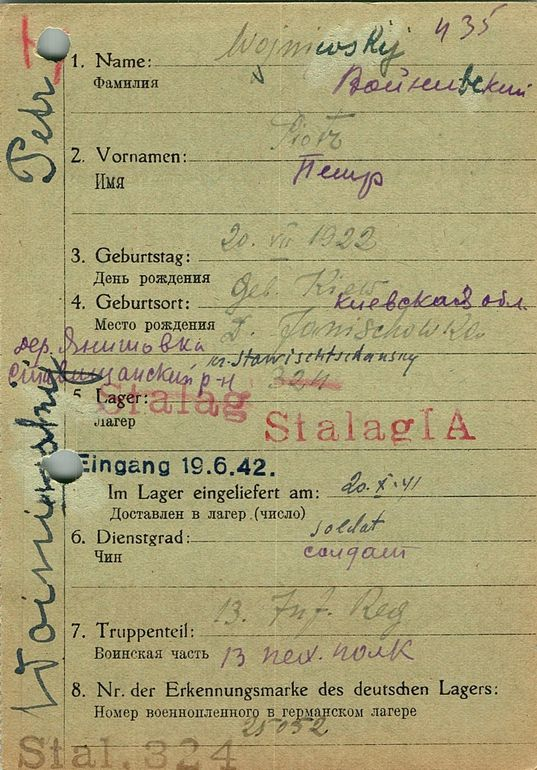 435
Petr
1. Name: Wojniewskij
Фамилия Войниевский
2. Vornamen: Piotr
Имя Петр
3. Geburtstag: 20. VII 1922
День рождения
4. Geburtsort: Geb. Kiew Киевская обл.
Место рождения D. Janischowka
дер. Янишовка
Ставищанский р-н kr. Stawischtschansky
324
Stalag
5. Lager:
Лагер
Stalag IA
Eingang 19.6.42.
Im Lager eingeliefert am: 20.X.41
Доставлен в лагер (число)
6. Dienstgrad: soldat
Чин солдат
7. Truppenteil: 13. Inf. Reg
Воинская часть 13 пех. полк
8. Nr. der Erkennungsmarke des deutschen Lagers:
Номер военнопленного в германском лагере
25052
Stal. 324